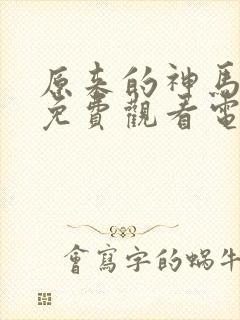 原来的神馬
免費觀看電
會寫字的蝸牛